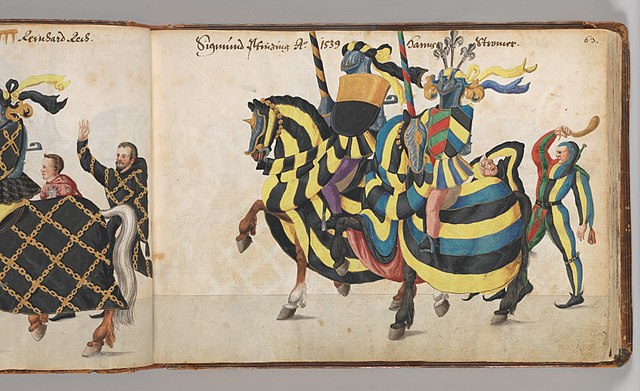 Reinhard Rech.
Sigmund Pfinzing A: 1539 Hanns Stromer. 63.